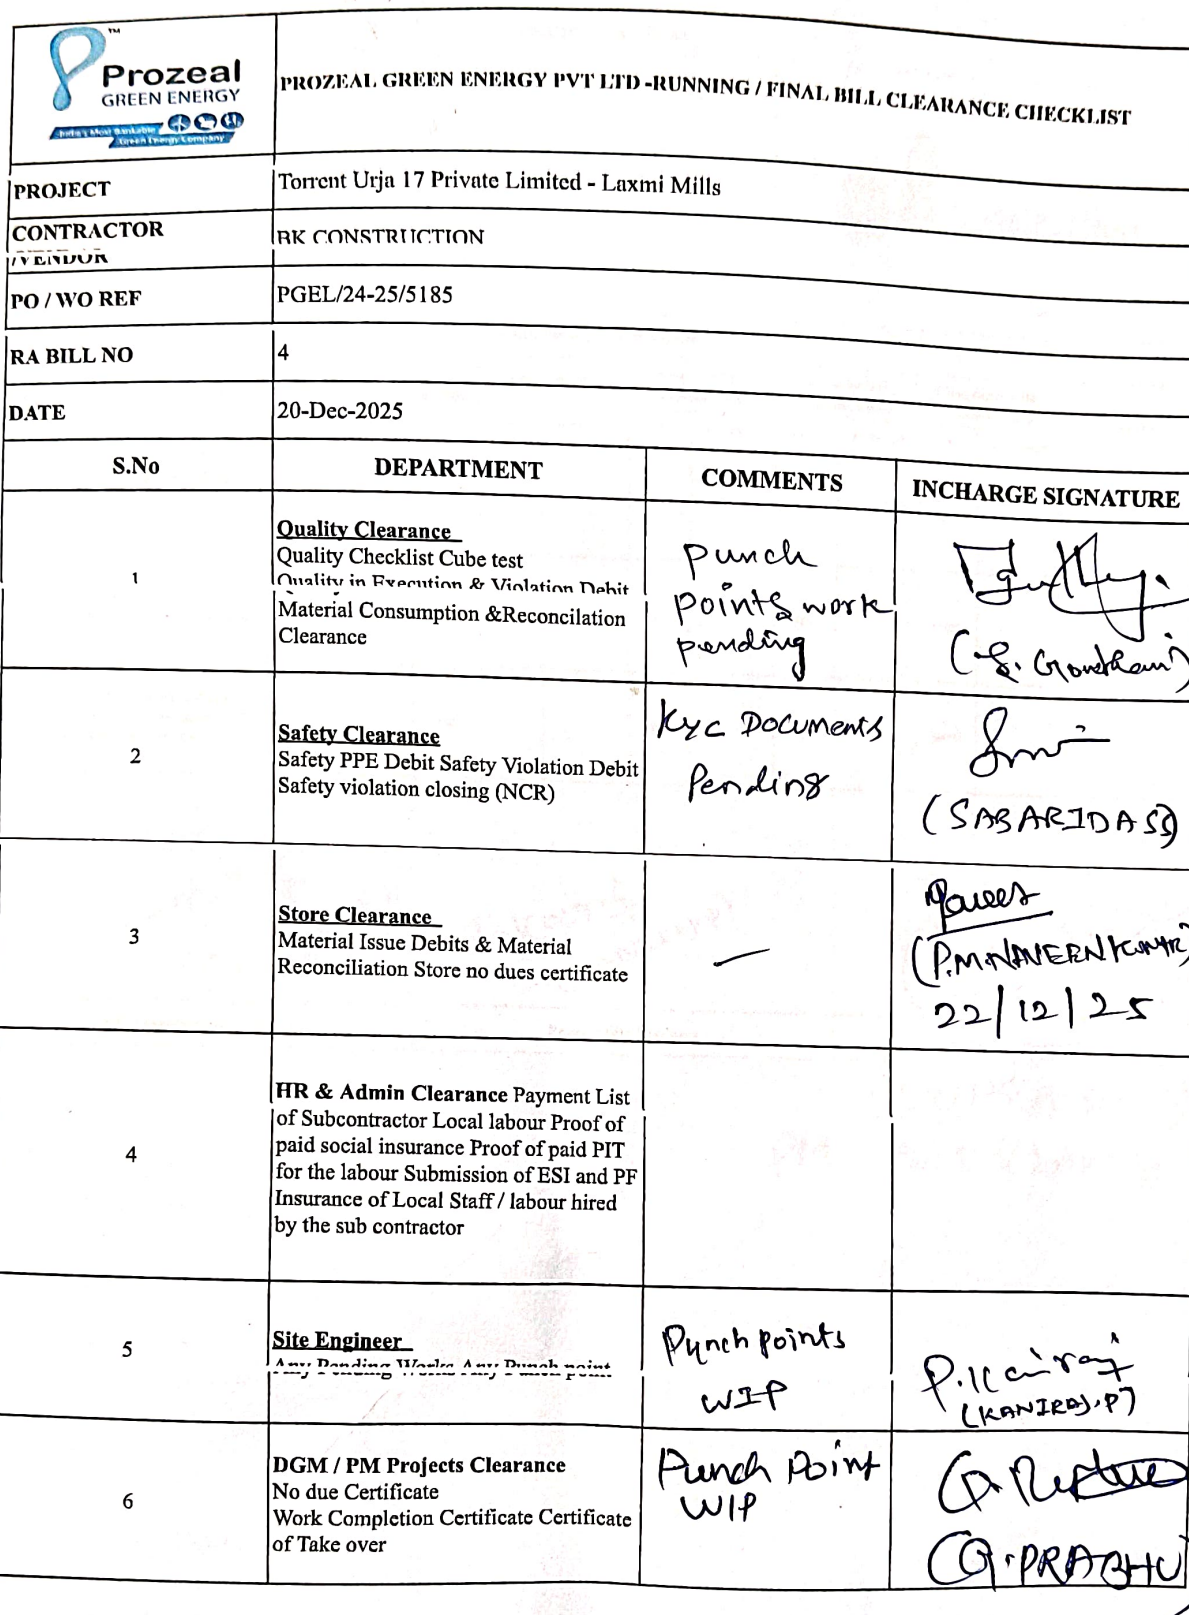 Prozeal
GREEN ENERGY
India's Most Bankable
Green Energy Company
PROZEAL GREEN ENERGY PVT LTD -RUNNING / FINAL BILL CLEARANCE CHECKLIST
PROJECT
Torrent Urja 17 Private Limited - Laxmi Mills
CONTRACTOR
/VENDOR
BK CONSTRUCTION
PO / WO REF
PGEL/24-25/5185
RA BILL NO
4
DATE
20-Dec-2025
S.No
DEPARTMENT
COMMENTS
INCHARGE SIGNATURE
1
Quality Clearance
Quality Checklist Cube test
Quality in Execution & Violation Debit
Material Consumption &Reconcilation
Clearance
Punch
Points work
pending
2
Safety Clearance
Safety PPE Debit Safety Violation Debit
Safety violation closing (NCR)
Kyc Documents
Pending
(SABARIDASS)
3
Store Clearance
Material Issue Debits & Material
Reconciliation Store no dues certificate
(P.M.NAVEENKUMAR)
22/12/25
4
HR & Admin Clearance Payment List
of Subcontractor Local labour Proof of
paid social insurance Proof of paid PIT
for the labour Submission of ESI and PF
Insurance of Local Staff / labour hired
by the sub contractor
5
Site Engineer
Any Pending Works Any Punch point
Punch points
WIP
P.Kaniraj
(KANIRAJ.P)
6
DGM / PM Projects Clearance
No due Certificate
Work Completion Certificate Certificate
of Take over
Punch Point
WIP
(G.PRABHU